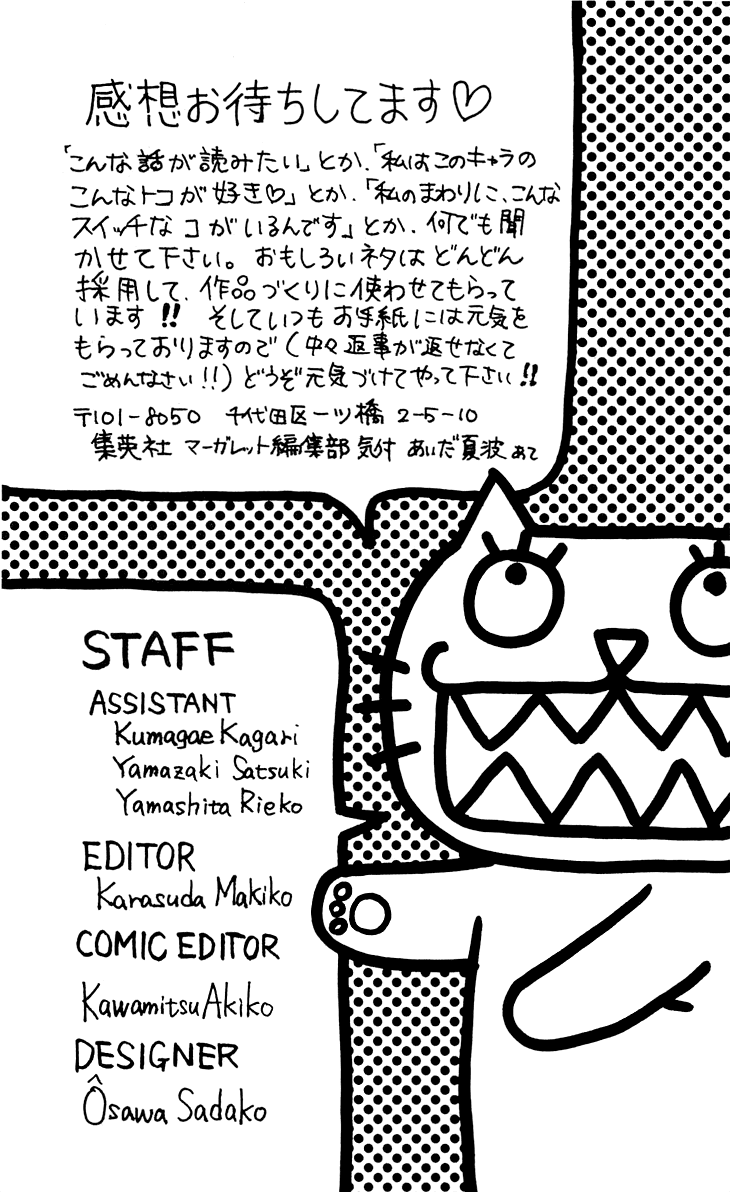 感想お待ちしてます♡
「こんな話が読みたい」とか、「私はこのキャラの
こんなトコが好き♡」とか、「私のまわりに、こんな
スイッチなコがいるんです」とか、何でも聞
かせて下さい。おもしろいネタはどんどん
採用して、作品づくりに使わせてもらって
います!! そしていつもお手紙には元気を
もらっておりますので(中々返事が返せなくて
ごめんなさい!!)どうぞ元気づけてやって下さい!!
〒101-8050 千代田区一ツ橋 2-5-10
集英社 マーガレット編集部気付 あいだ夏波あて
STAFF
ASSISTANT
Kumagae Kagari
Yamazaki Satsuki
Yamashita Rieko
EDITOR
Karasuda Makiko
COMIC EDITOR
Kawamitsu Akiko
DESIGNER
Ôsawa Sadako